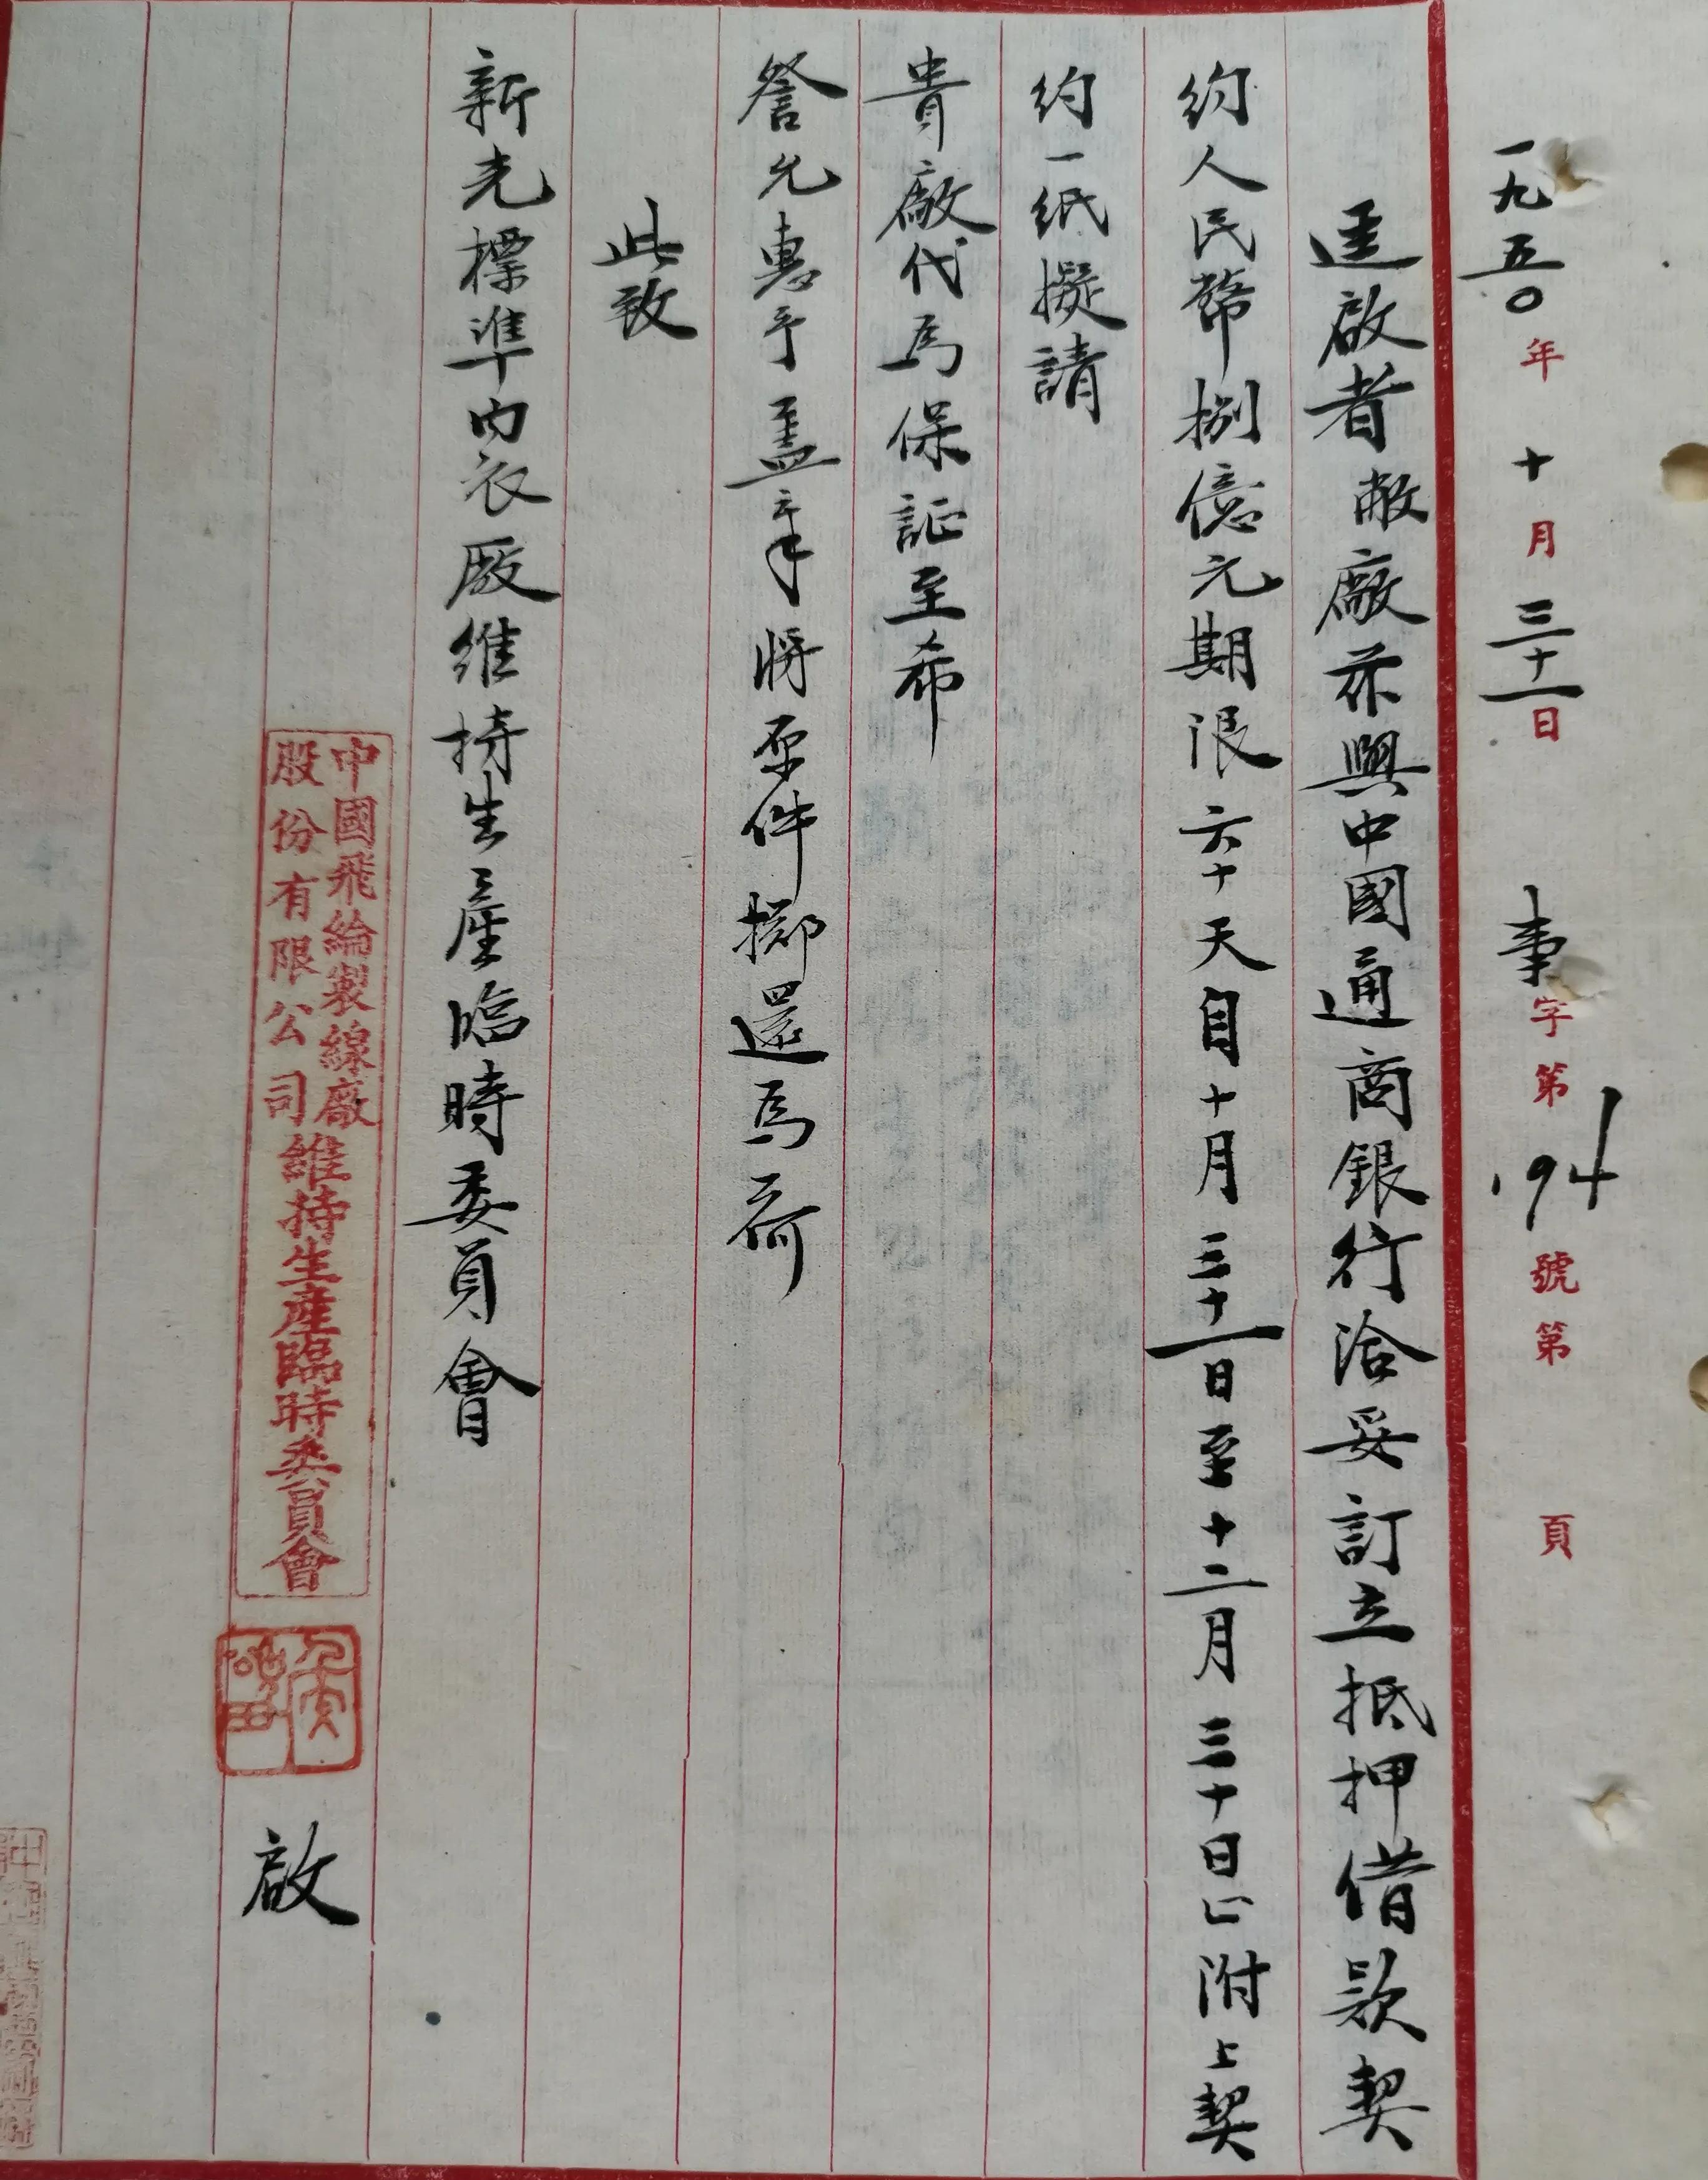 一九五〇年十月三十一日 事字第194號第 頁
逕啟者敝廠茲與中國通商銀行洽妥訂立抵押借款契
約人民幣捌億元期限六十天自十月三十一日至十二月三十日止附上契
約一紙擬請
貴廠代為保証至希
詧允惠予蓋章將原件擲還為荷
此致
新光標準內衣廠維持生產臨時委員會
中國飛綸製線廠
股份有限公司
維持生產臨時委員會
啟